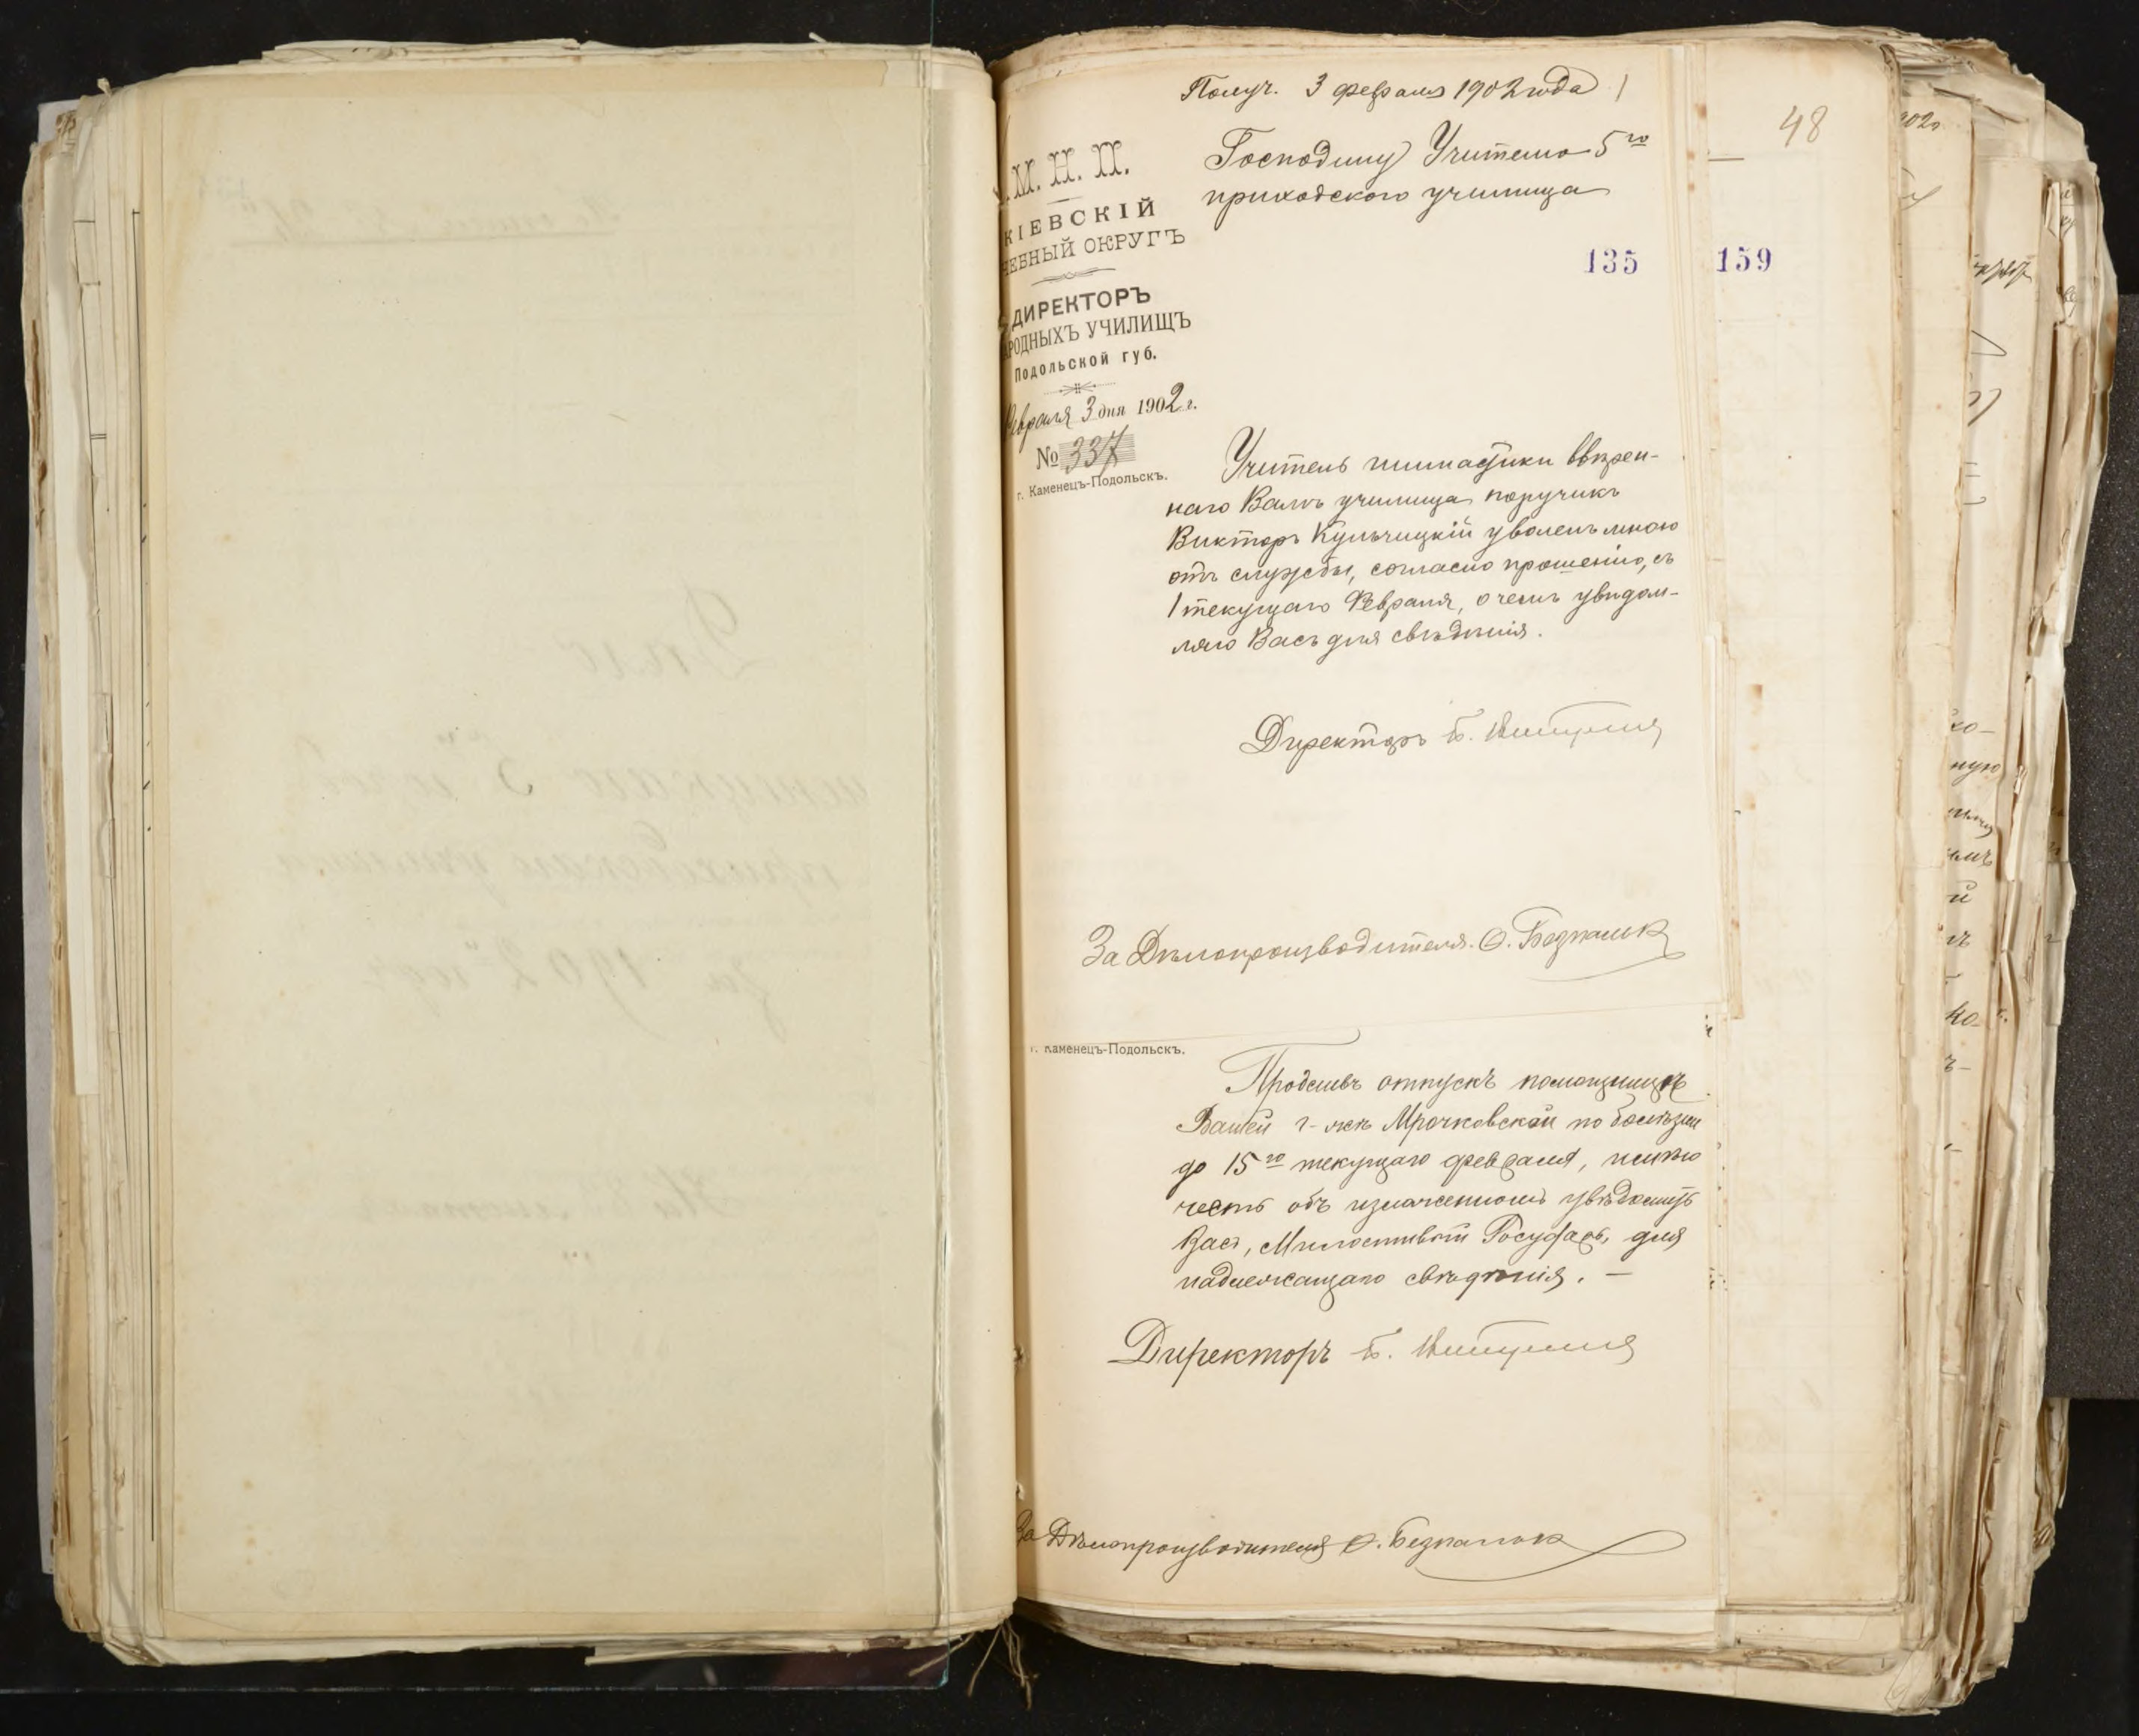 Получ. 3 февраля 1902 года
М. Н. П.
КІЕВСКІЙ
ЧЕБНЫЙ ОКРУГЪ
ДИРЕКТОРЪ
РОДНЫХЪ УЧИЛИЩЪ
Подольской губ.
Февраля 3 дня 1902 г.
№ 337
г. Каменецъ-Подольскъ.
Господину Учителю 5го
приходского училища
135
159
48
Учитель гимнастики ввѣрен-
наго Вамъ училища поручикъ
Викторъ Кульчицкій уволенъ мною
отъ службы, согласно прошенію, съ
1 текущаго Февраля, о чемъ увѣдом-
ляю Васъ для свѣдѣнія.
Директоръ
За Дѣлопроизводителя. О. Безпалюк
г. Каменецъ-Подольскъ.
Продливъ отпускъ помощницѣ
Вашей г-жѣ Мрочковской по болѣзни
до 15го текущаго февраля, имѣю
честь объ изложенномъ увѣдомить
Васъ, Милостивый Государь, для
надлежащаго свѣдѣнія. —
Директоръ
За Дѣлопроизводителя О. Безпалюк